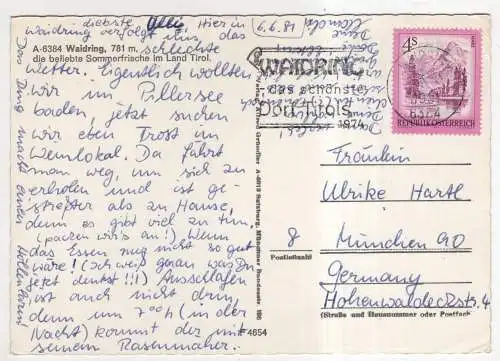 diebste Ulli! Hier in
Waidring verfolgt uns das
A-6384 Waidring, 781 m,
die beliebte Sommerfrische im Land Tirol.
schlechte
Wetter. Eigentlich wollten
wir im Pillersee
baden, jetzt suchen
wir eben Trost im
Weinlokal. Da fährt
man weg, um sich zu
erholen und ist ge-
streßter als zu Hause,
denn es gibt viel zu tun,
(packen wir's an!) Wenn
das Essen nur nicht so gut
wäre! (Ich weiß genau was Du
jetzt denkst!!!) Ausschlafen
ist auch nicht drin,
denn um 7⁰⁰h (in der
Nacht) kommt der mit
seinem Rasenmäher.
Das Ding macht einen Höllenlärm!
6.6.81
WAIDRING
das schönste
Dorf Tirols
1974
4 S
6384
REPUBLIK ÖSTERREICH
Fräulein
Ulrike Hartl
8 München 90
Postleitzahl
Germany
Hohenwaldeckstr. 4
(Straße und Hausnummer oder Postfach)
4654